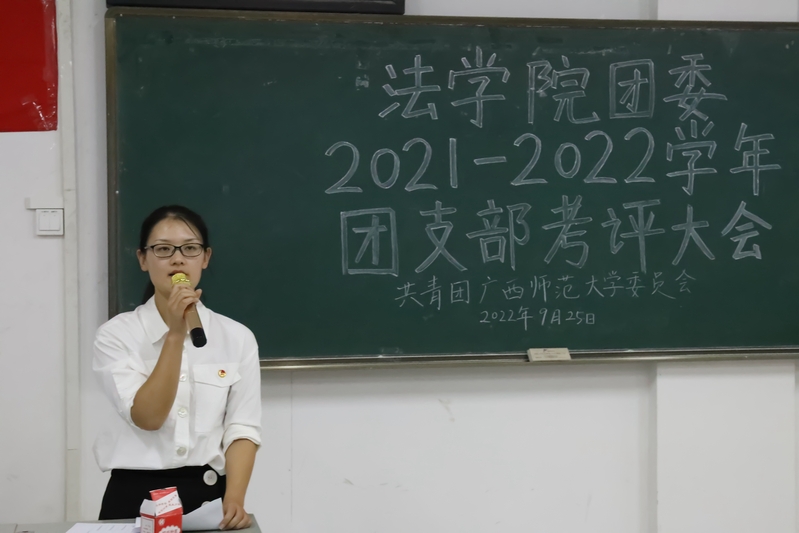 法学院团委
2021-2022学年
团支部考评大会
共青团广西师范大学委员会
2022年9月25日